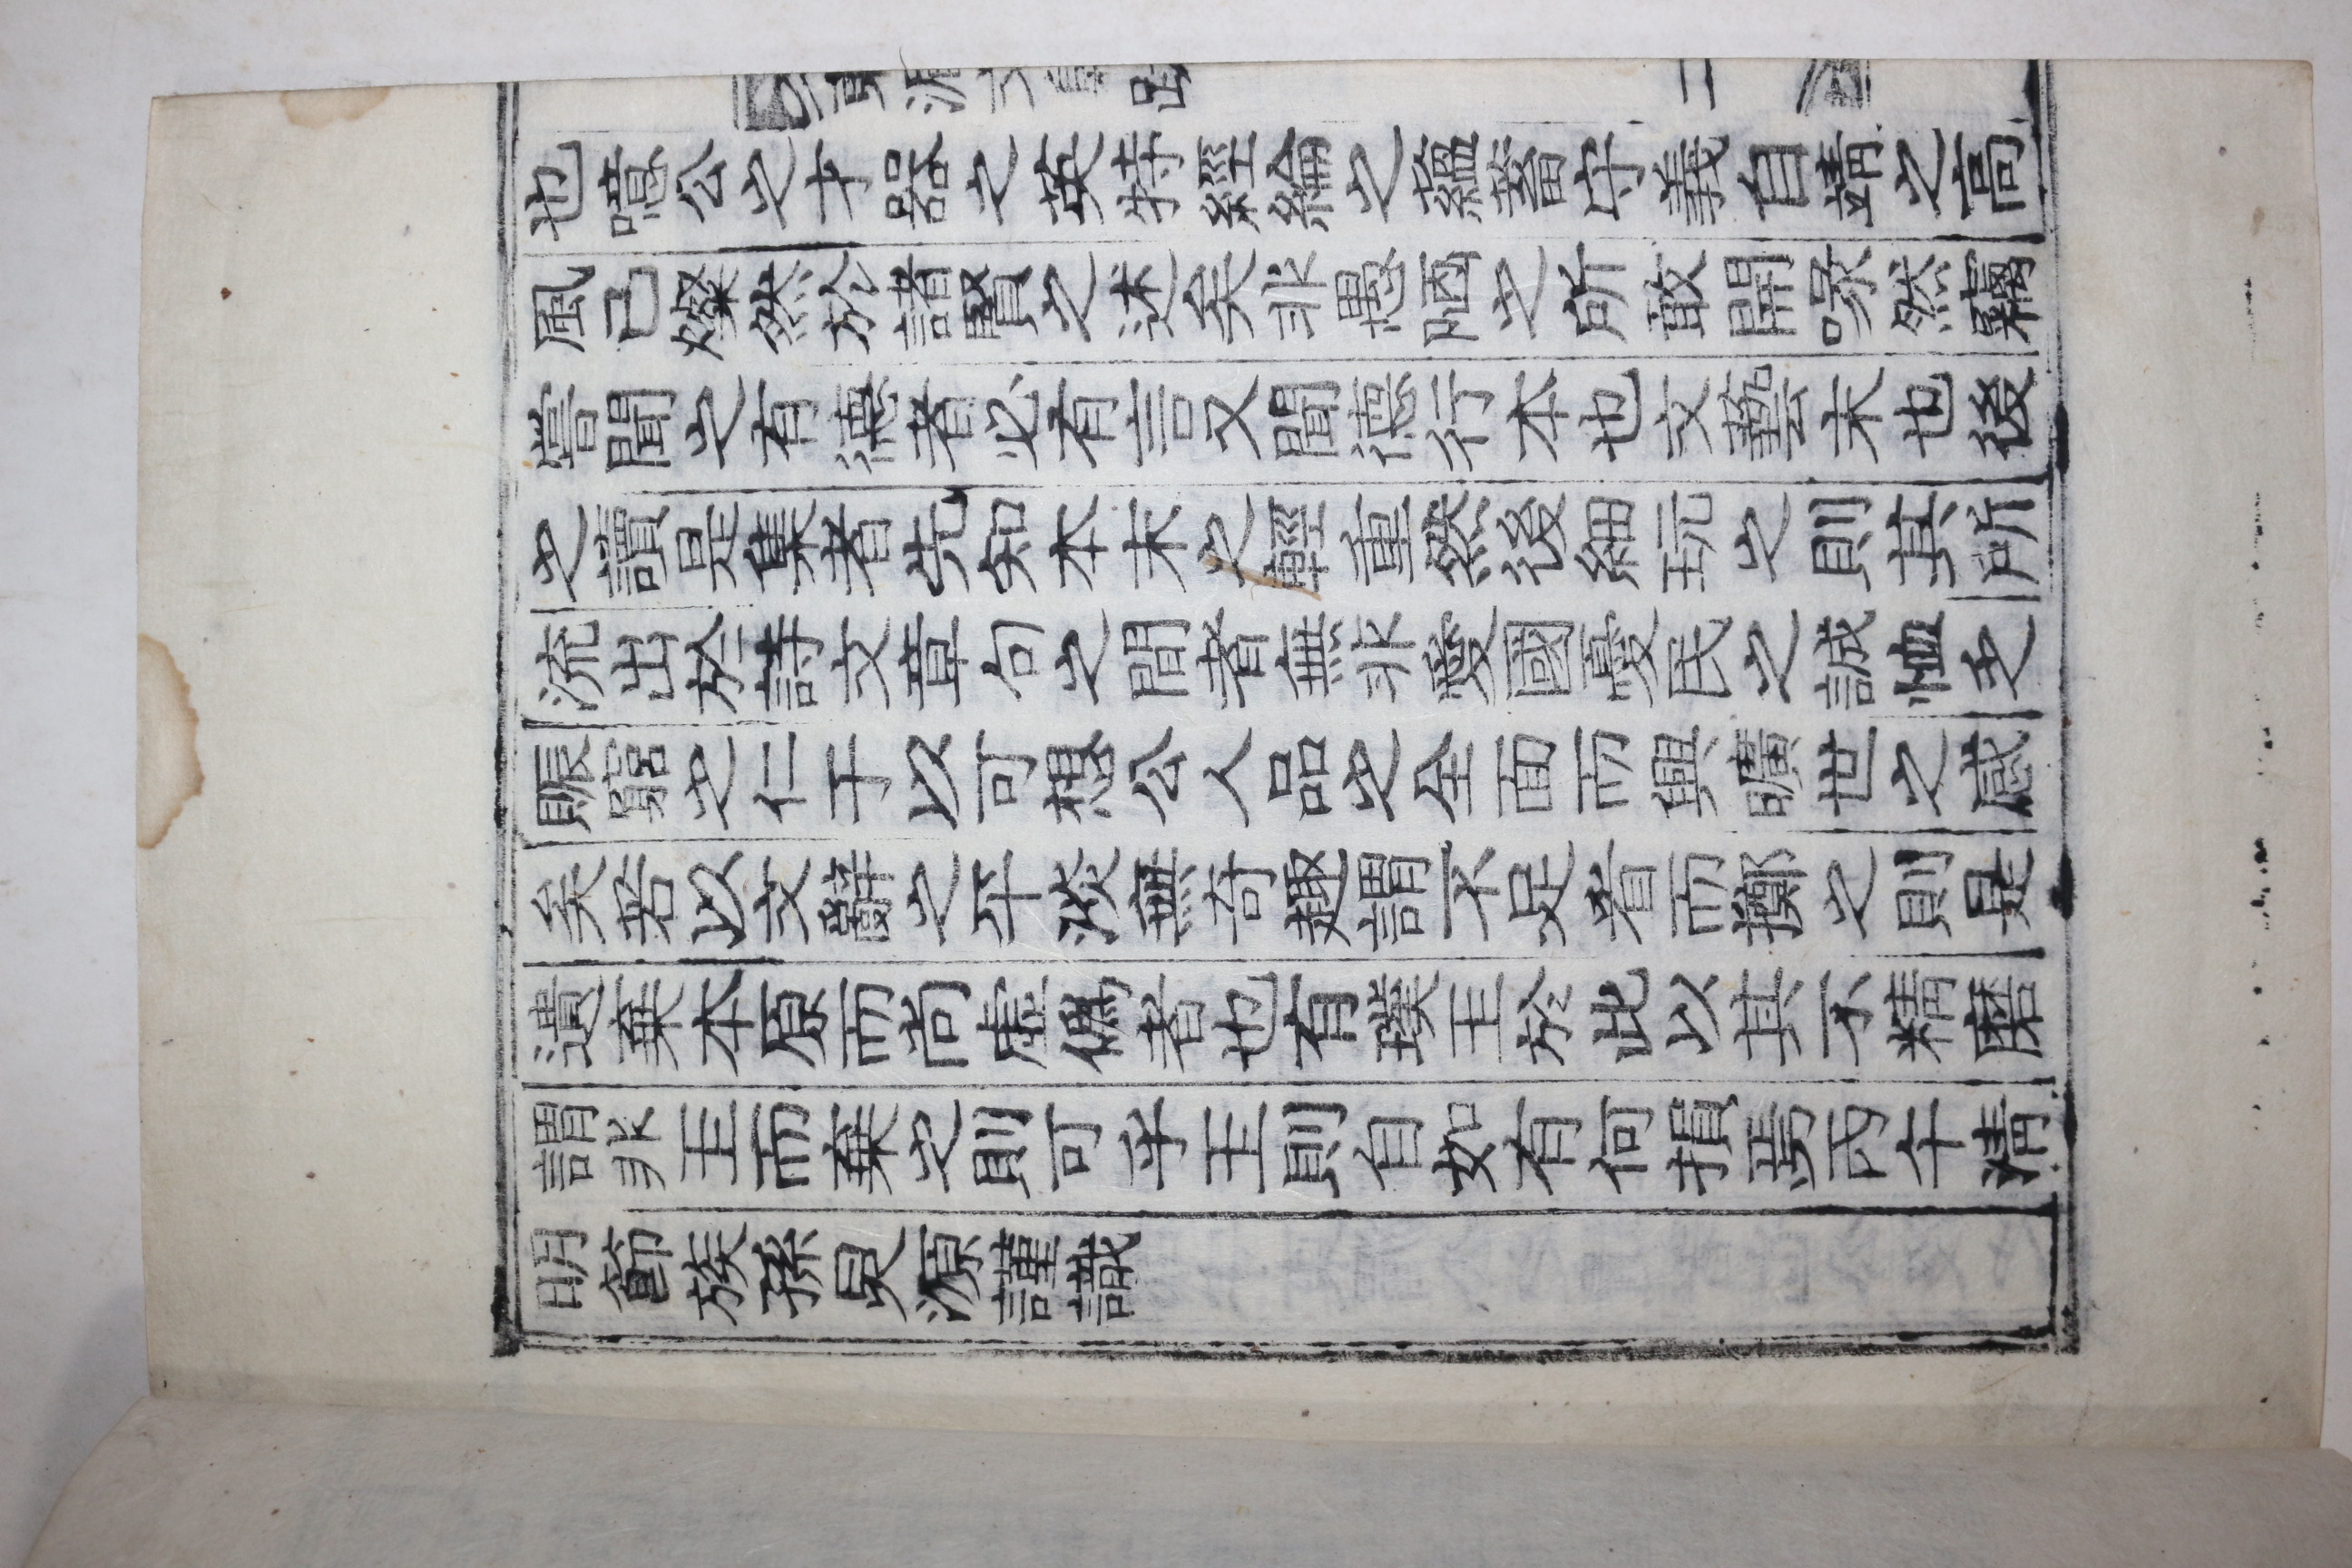 也噫公之才器之英特經綸之蘊蓄守義自靖之高
風已燦然於諸賢之述矣非愚陋之所敢開喙然竊
嘗聞之有德者必有言又聞德行本也文藝末也後
之讀是集者先知本末之輕重然後細玩之則其所
流出於詩文章句之間者無非愛國憂民之誠恤乏
賑窮之仁于以可想公人品之全面而興曠世之感
矣若以文辭之平淡無奇趣謂不足者而擲之則是
遺棄本原而尚虛僞者也有璞玉於此以其不精磨
謂非玉而棄之則可乎玉則自如有何損焉丙午清
明節族孫昊源謹識